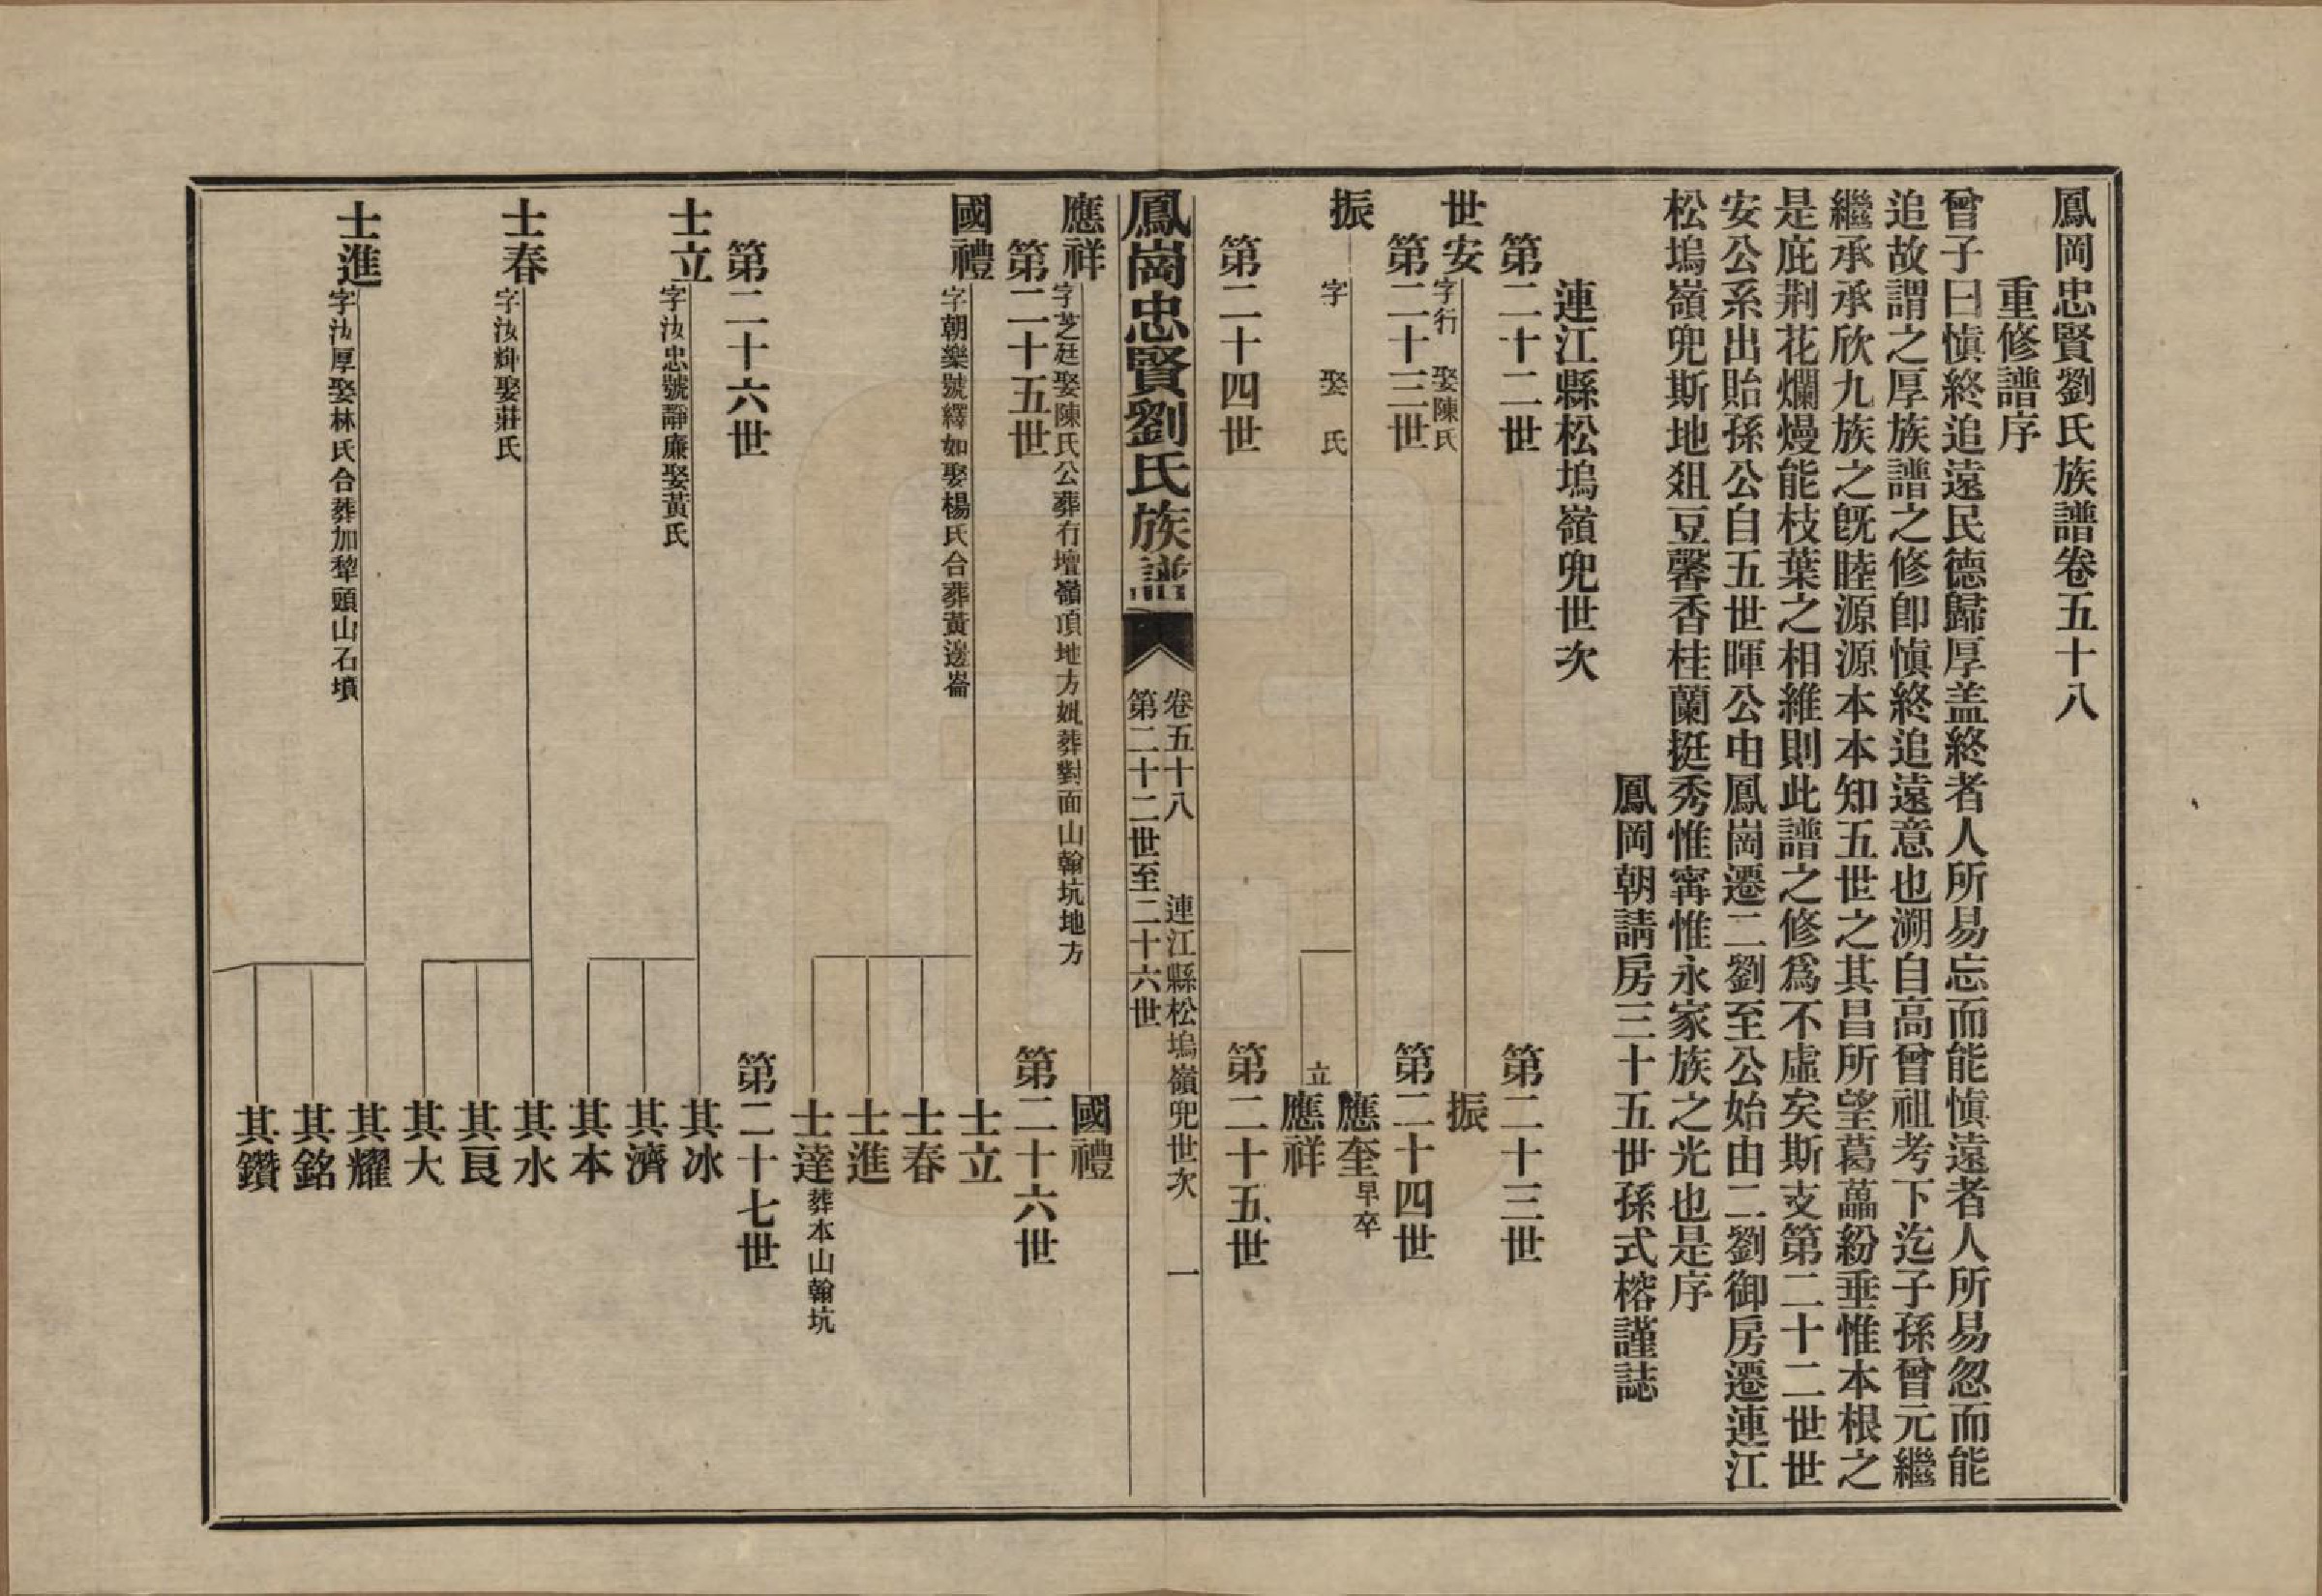 鳳岡忠賢劉氏族譜卷五十八
重修譜序
曾子曰慎終追遠民德歸厚盖終者人所易忘而能慎遠者人所易忽而能
追故謂之厚族譜之修卽慎終追遠意也溯自高曾祖考下迄子孫曾元繼
繼承承欣九族之旣睦源源本本知五世之其昌所望葛藟紛垂惟本根之
是庇荆花爛熳能枝葉之相維則此譜之修爲不虛矣斯支第二十二世世
安公系出貽孫公自五世暉公由鳳崗遷二劉至公始由二劉御房遷連江
松塢嶺兜斯地俎豆馨香桂蘭挺秀惟寗惟永家族之光也是序
鳳岡朝請房三十五世孫式榕謹誌
連江縣松塢嶺兜世次
第二十二世 第二十三世
世安 字行 娶陳氏 振
第二十三世 第二十四世
振 字 娶 氏 應奎 早卒
立 應祥
第二十四世 第二十五世
鳳崗忠賢劉氏族譜 卷五十八 連江縣松塢嶺兜世次 一
第二十二世至二十六世
應祥 字芝廷娶陳氏公葬冇壇嶺頂地方妣葬對面山翰坑地方 國禮
第二十五世 第二十六世
國禮 字朝樂號繹如娶楊氏合葬黃邊崙 士立
士春
士進
士達 葬本山翰坑
第二十六世 第二十七世
士立 字汝忠號靜廉娶黃氏 其冰
其濟
其本
士春 字汝緯娶莊氏 其水
其艮
其大
士進 字汝厚娶林氏合葬加犂頭山石墳 其耀
其銘
其鑽